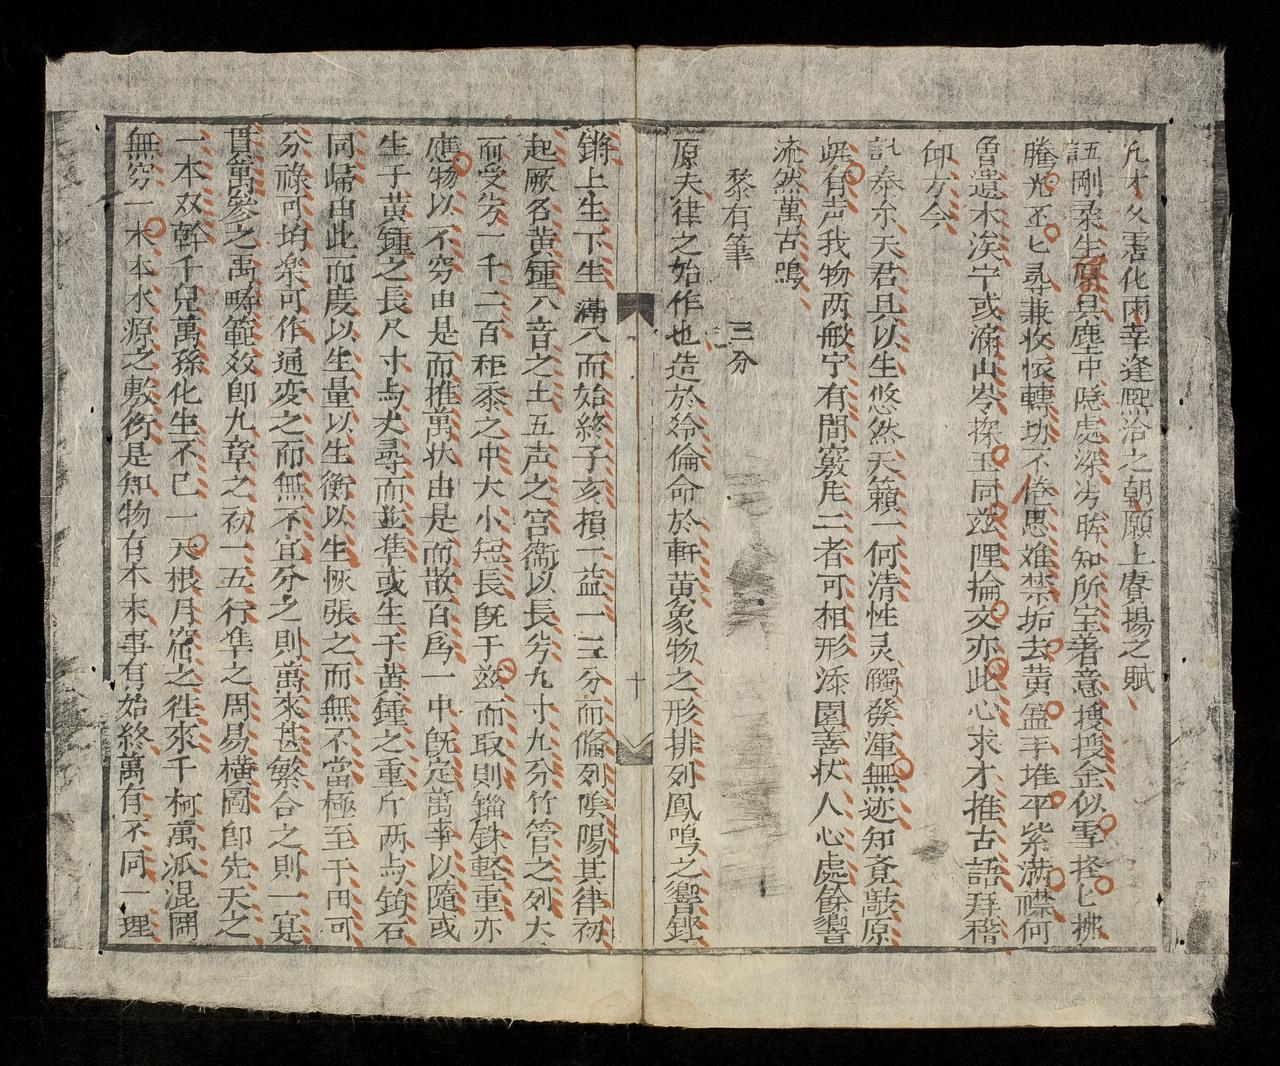 凡才久霑化雨幸逢熙洽之朝願上賡揚之賦
玉剛柔生原具塵壺中隱處深此睠知所宝着意捜捜金似雪挃匕拂
騰光丕匕尋兼收依轉切不倦思难禁垢去黄盈手堆平紫满襟何
魯遺木涘宁或漏山岑探玉同兹理掄文亦此心求才推古語拜稽
仰方今
訧泰尔天君具以生悠然天籟一何清性灵觸發渾無迹知竟敲原
岘有声我物两般宁有間竅虗二者可相形漆園善状人心處餘響
流然萬古鳴
黎有筆 三分
原夫律之始作也造於伶倫命於軒黄象物之形排列鳳鳴之響鏗
鏘上生下生隔八而始終子亥損一益一三分而俻列陰陽其律初
起厥名黄鍾八音之土五声之宫衞以長分九寸九分竹管之列大
而受分一千二百秬黍之中大小短長旣于兹而取則錙銖輕重亦
應物以不穷由是而推萬状由是而散百爲一中旣定萬事以隨或
生于黄鍾之長尺寸与丈尋而並準或生于黄鍾之重斤两与鈞石
同歸由此而度以生量以生衡以生恢張之而無不當極至于田可
分祿可均楽可作通变之而無不宜分之則萬來甚繁合之則一寔
貫萬參之禹疇範敘卽九章之初一五行準之周易横圖卽先天之
一本双幹千兒萬孫化生不已一元根月窟之徃來千柯萬派混圓
無穷一木本水源之敷衍是知物有本末事有始終萬有不同一理
十